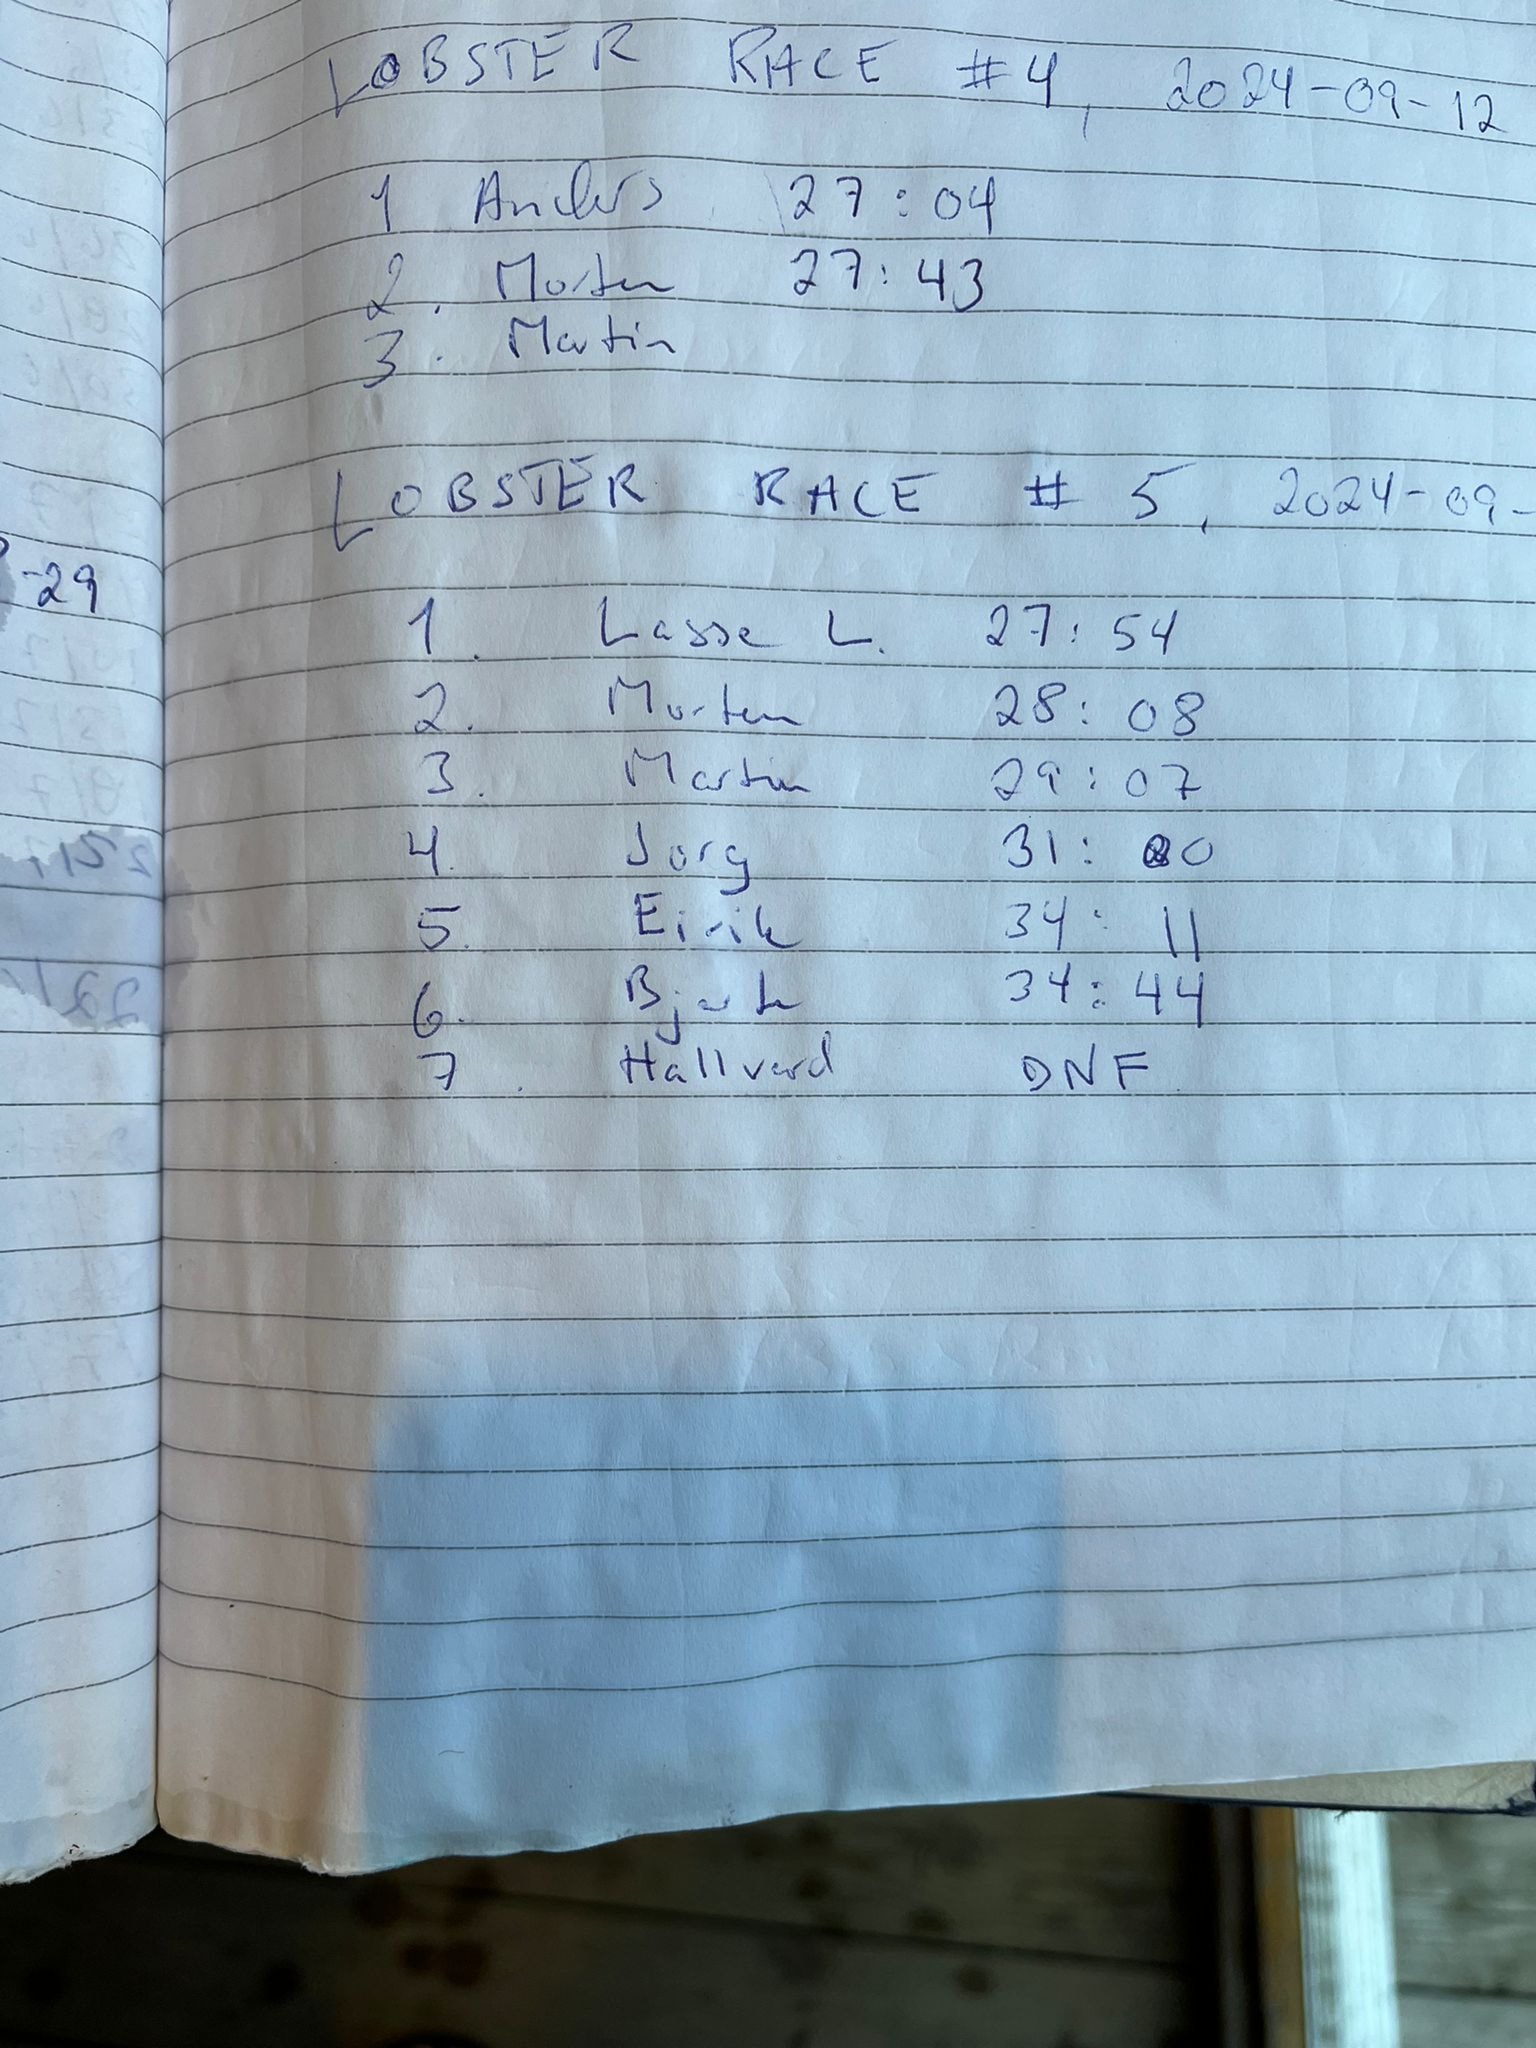 LOBSTER RACE #4, 2024-09-12
1 Anders 27:04
2. Morten 27:43
3. Martin
LOBSTER RACE # 5, 2024-09-
-29
1. Lasse L. 27:54
2. Morten 28:08
3. Martin 29:07
4. Jorg 31:
5. Eirik 34:11
6. Bjarte 34:44
7. Hallvard DNF